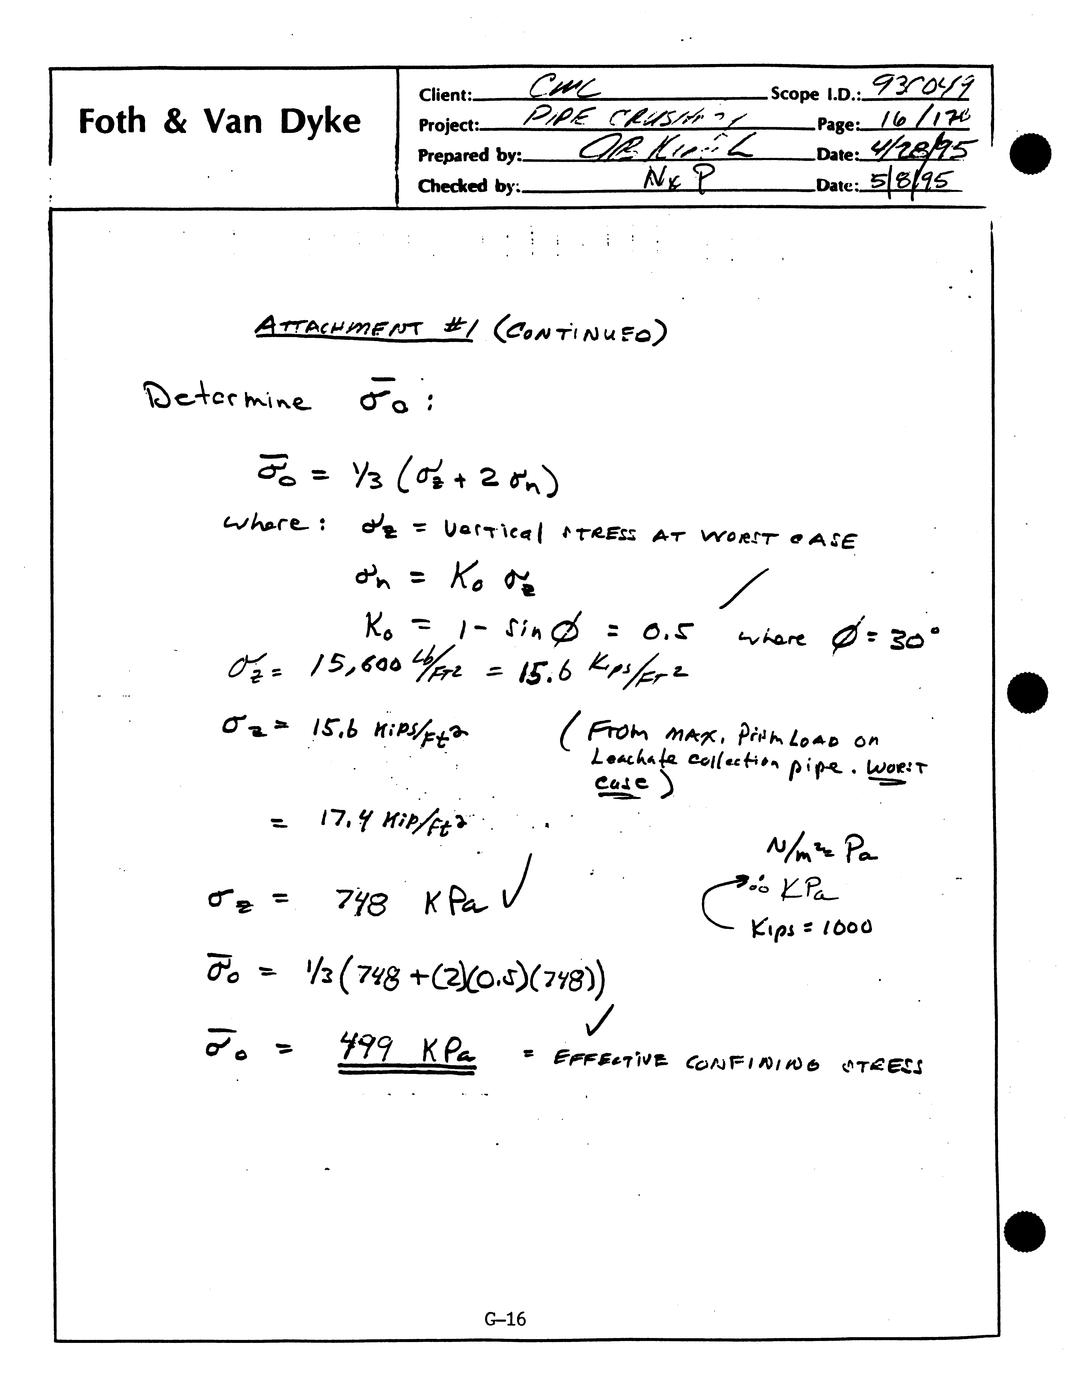 Foth & Van Dyke
Client: CMC Scope I.D.: 93C049
Project: PIPE CRUSHING Page: 16/17
Prepared by: Date: 4/28/95
Checked by: NxP Date: 5/8/95
ATTACHMENT #1 (CONTINUED)
Determine σ̅o :
σ̅o = 1/3 (σz + 2 σn)
where: σz = Vertical STRESS AT WORST CASE
σn = Ko σz
Ko = 1 - sin Ø = 0.5 where Ø = 30°
σz = 15,600 Lb/FT2 = 15.6 Kips/FT2
σz = 15.6 KiPS/Ft2 (FROM MAX. Prism LOAD on
Leachate collection pipe. WORST
case)
= 17.4 KiP/Ft2
N/m2 = Pa
σz = 748 KPa ✓ ∴ KPa
Kips = 1000
σ̅o = 1/3 (748 + (2)(0.5)(748))
σ̅o = 499 KPa ✓ = EFFECTIVE CONFINING STRESS
G-16